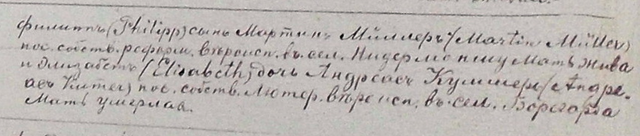 Филиппъ (Philipp) сынъ Мартинъ Мюллеръ (Martin Müller)
пос. собств. реформ. вѣроисп. въ сел. Нидермонжу Мать жива
и Элизабетъ (Elisabeth) дочь Андреасъ Куммеръ (Andre-
асъ Kumer) пос. собств. Лютер. вѣроисп. въ сел. Борегардъ
Мать умерла.